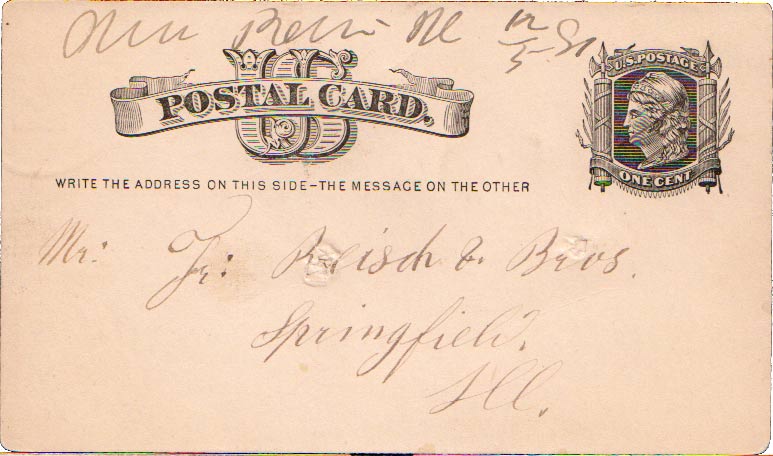 New Berlin Ill 12/5 81
U.S. POSTAGE
US
POSTAL CARD.
ONE CENT
WRITE THE ADDRESS ON THIS SIDE–THE MESSAGE ON THE OTHER
Mr: Fr: Reisch & Bros.
Springfield.
Ill.